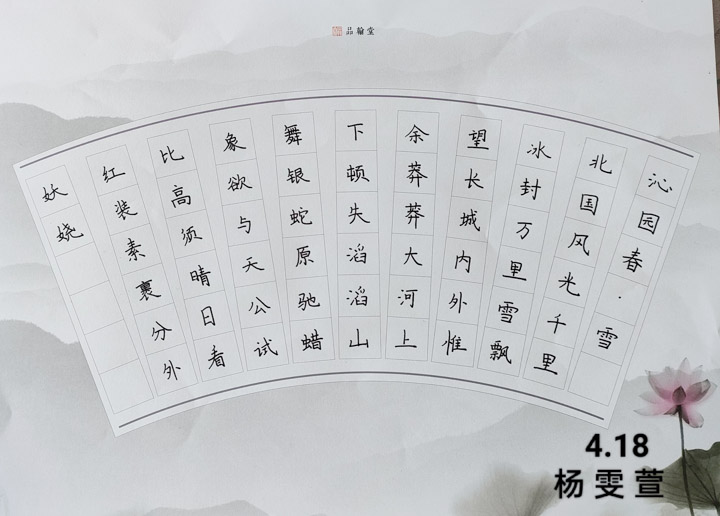 品翰堂
沁园春·雪
北国风光千里
冰封万里雪飘
望长城内外惟
余莽莽大河上
下顿失滔滔山
舞银蛇原驰蜡
象欲与天公试
比高须晴日看
红装素裹分外
妖娆
4.18
杨雯萱